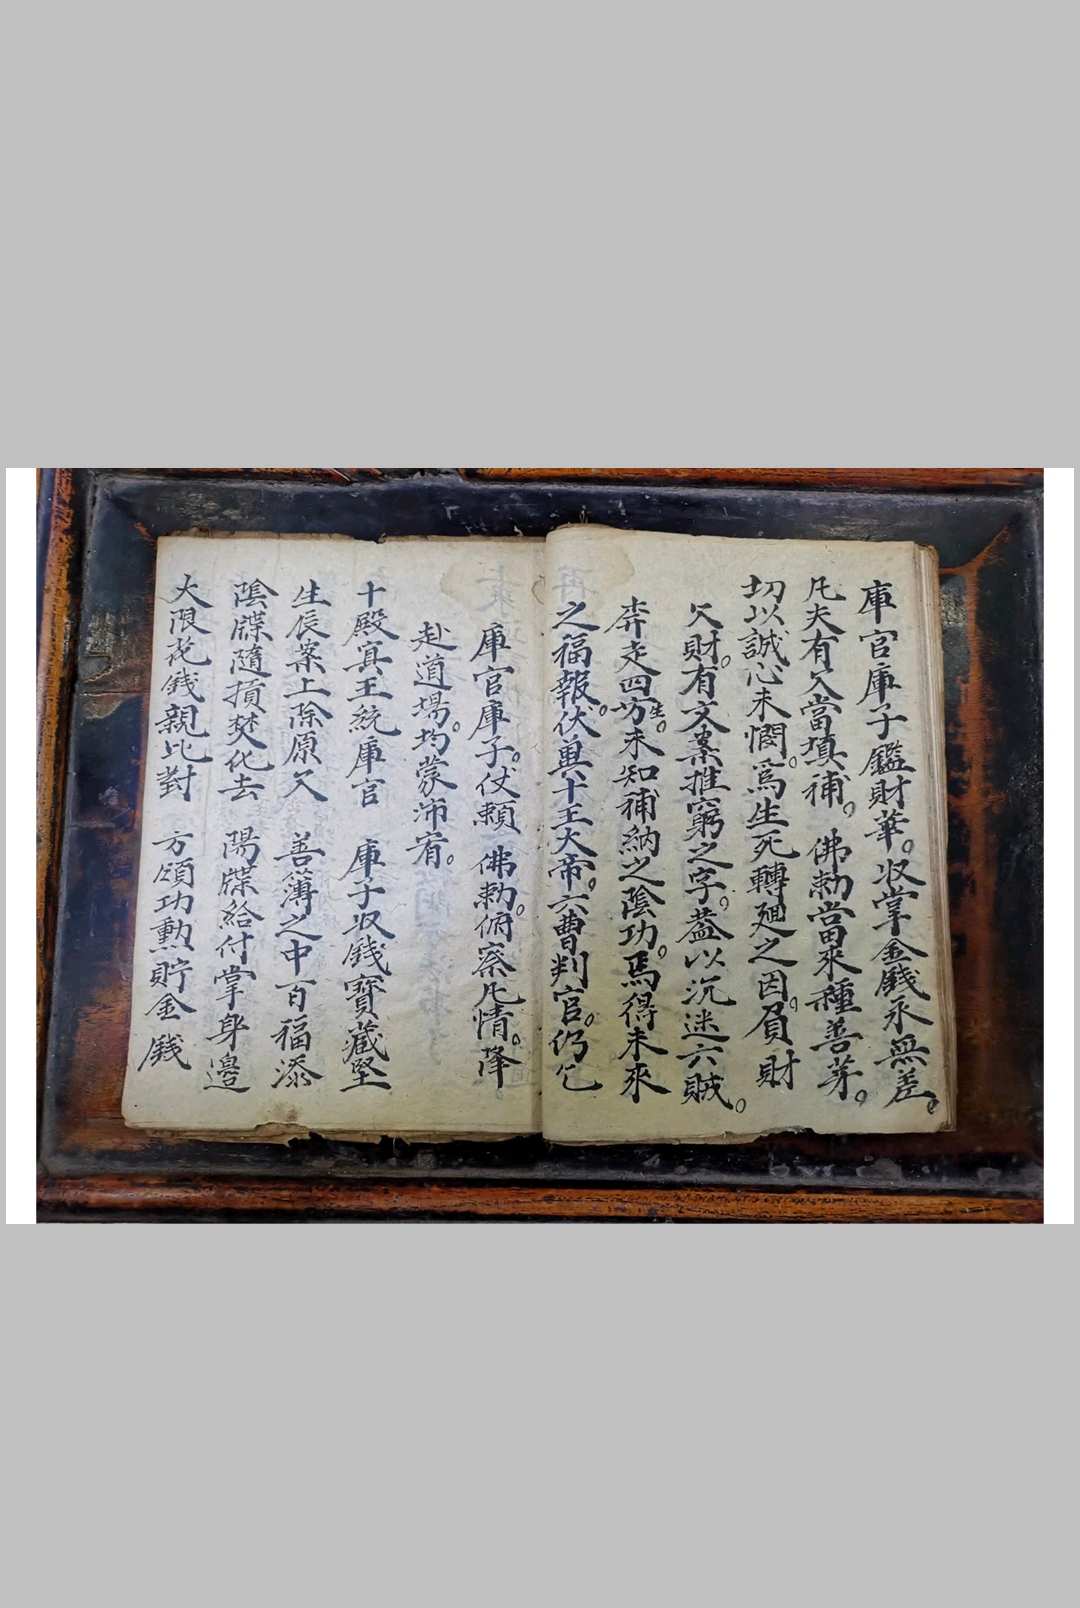 庫官庫子鑑財華。収掌金錢永無差。
凡夫有欠當填補。佛勅當來種善芽。
切以誠心未憫。爲生死轉廻之因。負財
欠財。有文案推窮之字。葢以沉迷六賊。
奔走四方生。未知補納之陰功。焉得未來
之福報。伏兾十王大帝。六曹判官。仍乞
庫官庫子。仗賴 佛勅。俯察凡情。降
赴道場。均蒙沛宥。
十殿冥王統庫官 庫子収錢寶藏堅
生辰案上除原欠 善簿之中百福添
陰牒隨損焚化去 陽牒給付掌身邊
大限花錢親比對 方頌功勳貯金錢